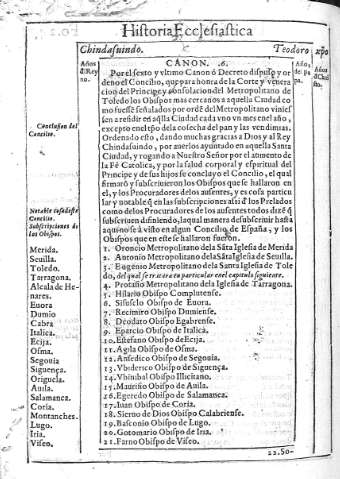 Historia Ecclesiastica
Chindasuindo. Teodoro xpo
Años d'Rey no.
Años, de pa pa.
Años d Christo.
CANON. 6.
Por el sexto y vltimo Canõ ô Decreto dispuso y or
deno el Concilio, q̃ para honra de la Corte y venera
ciõ del Principe y consolacion del Metropolitano de
Toledo los Obispos mas cercanos a aquella Ciudad co
mo fuesse señalados por ordẽ del Metropolitano viniessen
a residir en aq̃lla Ciudad cada vno vn mes en el año,
excepto en el tpõ de la cosecha del pan y las vendimias.
Ordenado esto, dando muchas gracias a Dios y al Rey
Chindasuindo, por auerlos ayuntado en aquella Santa
Ciudad, y rogando a Nuestro Señor por el aumento de
la Fè Catolica, y por la salud corporal y espiritual del
Principe y de sus hijos se concluyo el Concilio, el qual
firmarõ y subscriuieron los Obispos que se hallaron en
el, y los Procuradores de los ausentes, y es cosa particu
lar y notable q̃ en las subscripciones assi d' los Prelados
como de los Procuradores de los ausentes todos dizẽ q̃
subscriuen difiniendo, laqual manera de subscriuir hasta
aqui no se à visto en algun Concilio de España, y los
Obispos que en este se hallaron fueron.
Conclusion del
Concilio.
Notable cosa deste
Concilio.
Subscripciones de
los Obispos.
Merida.
Seuilla.
Toledo.
Tarragona.
Alcala de He-
nares.
Euora
Dumio
Cabra
Italica.
Ecija.
Osma.
Segouia
Siguença.
Origuela.
Auila.
Salamanca.
Coria.
Montanches.
Lugo.
Iria.
Viseo.
1. Oroncio Metropolitano dela Sãta Iglesia de Merida
2. Antonio Metropolitano dela Sãta Iglesia de Seuilla.
3. Eugenio Metropolitano dela Santa Iglesia de Tole
do, del qual se tratara en particular en el capitulo siguiente.
4. Protasio Metropolitano dela Iglesia de Tarragona.
5. Hilario Obispo Complutense.
6. Sisusclo Obispo de Euora.
7. Recimiro Obispo Dumiense.
8. Deodato Obispo Egabrense.
9. Eparcio Obispo de Italica.
10. Estefano Obispo de Ecija.
11. Agila Obispo de Osma.
12. Ansedico Obispo de Segouia.
13. Vbiderico Obispo de Siguença.
14. Vbinibal Obispo Illicitano.
15. Mauriño Obispo de Auila.
16. Egeredo Obispo de Salamanca.
17. Iuan Obispo de Coria.
18. Sierno de Dios Obispo Calabriense.
19. Basconio Obispo de Lugo.
20. Gotomario Obispo de Iria.
21. Farno Obispo de Viseo.
22. So-